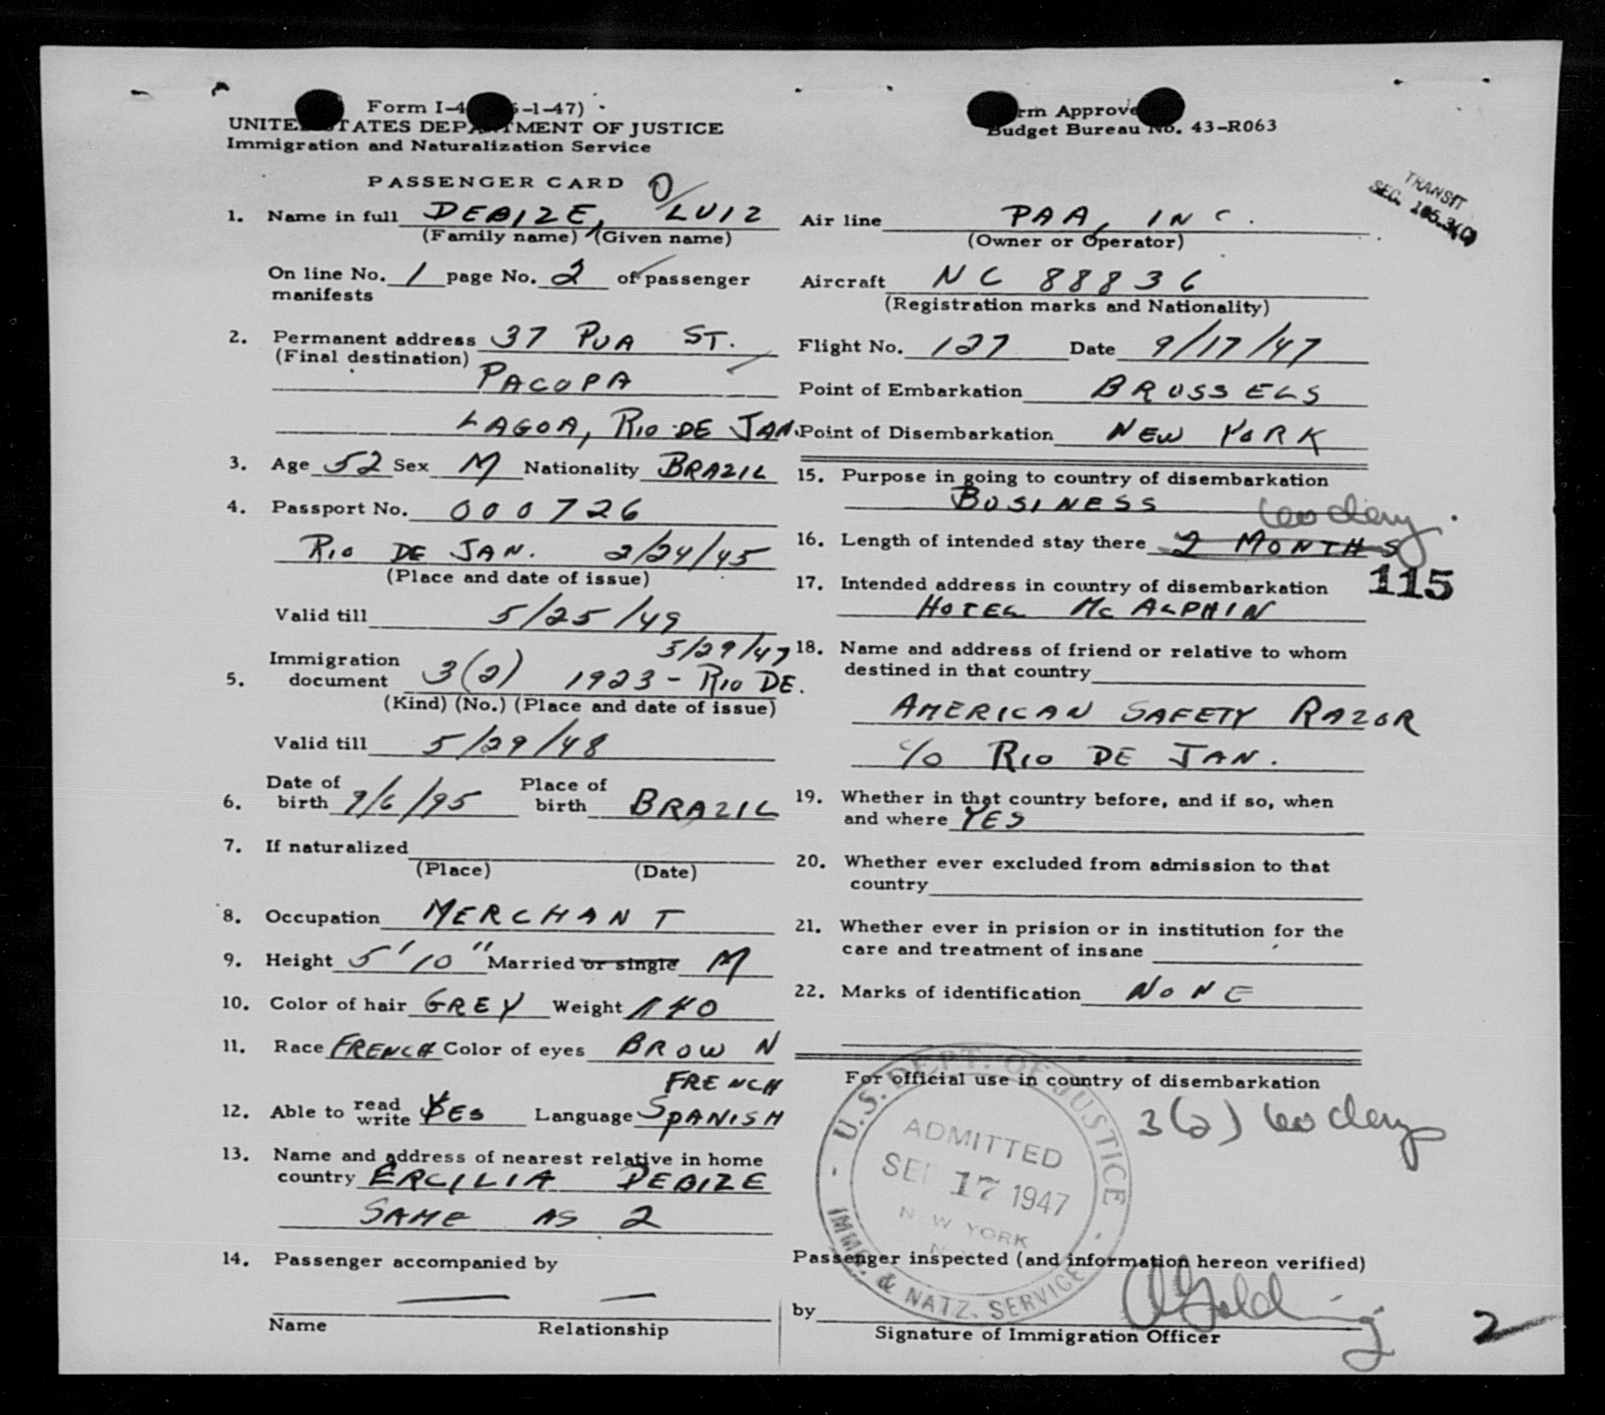 Form I-4 -1-47)
UNITE TATES DEPA TMENT OF JUSTICE
Immigration and Naturalization Service
rm Approve
Budget Bureau No. 43-R063
PASSENGER CARD
TRANSIT
SEC. 105.3(C)
1. Name in full DEBIZE, LUIZ
(Family name) (Given name)
On line No. 1 page No. 2 of passenger
manifests
2. Permanent address 37 PUA ST.
(Final destination)
PACOPA
LAGOA, RIO DE JAN.
3. Age 52 Sex M Nationality BRAZIL
4. Passport No. 000726
RIO DE JAN. 2/24/45
(Place and date of issue)
Valid till 5/25/49
5/29/47
5. Immigration document 3(2) 1923 - RIO DE.
(Kind) (No.) (Place and date of issue)
Valid till 5/29/48
6. Date of birth 9/6/95 Place of birth BRAZIL
7. If naturalized
(Place) (Date)
8. Occupation MERCHANT
9. Height 5'10" Married or single M
10. Color of hair GREY Weight 140
11. Race FRENCH Color of eyes BROWN
FRENCH
12. Able to read write YES Language SPANISH
13. Name and address of nearest relative in home
country ERCILIA DEBIZE
SAME AS 2
14. Passenger accompanied by
Name Relationship
Air line PAA, INC.
(Owner or Operator)
Aircraft NC 88836
(Registration marks and Nationality)
Flight No. 127 Date 9/17/47
Point of Embarkation BRUSSELS
Point of Disembarkation NEW YORK
15. Purpose in going to country of disembarkation
BUSINESS
60 days
16. Length of intended stay there 2 MONTHS
17. Intended address in country of disembarkation
115
HOTEL MC ALPHIN
18. Name and address of friend or relative to whom
destined in that country
AMERICAN SAFETY RAZOR
C/O RIO DE JAN.
19. Whether in that country before, and if so, when
and where YES
20. Whether ever excluded from admission to that
country
21. Whether ever in prision or in institution for the
care and treatment of insane
22. Marks of identification NONE
For official use in country of disembarkation
3(2) 60 days
U.S. DEPT. OF JUSTICE
ADMITTED
SEP 17 1947
NEW YORK
IMMG. & NATZ. SERVICE
Passenger inspected (and information hereon verified)
by
Signature of Immigration Officer
2